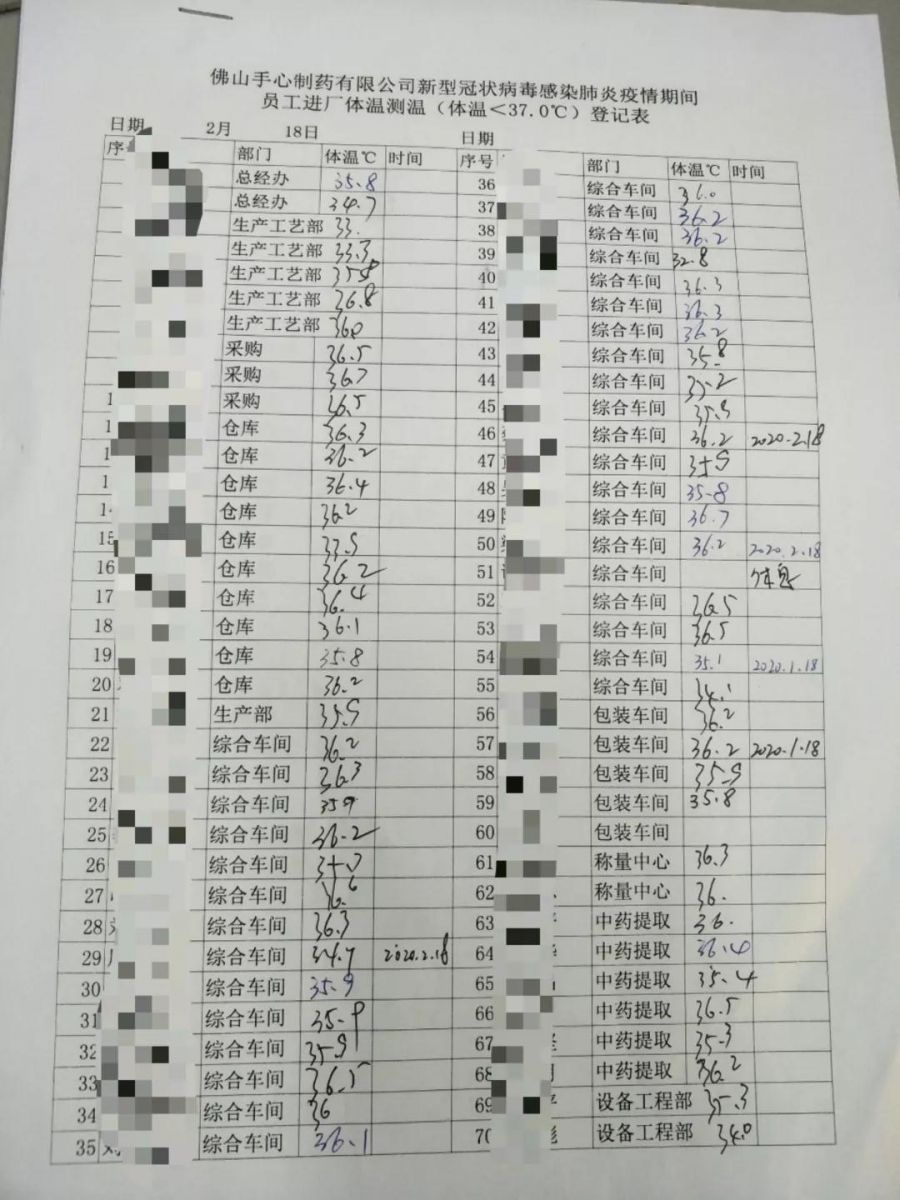 佛山手心制药有限公司新型冠状病毒感染肺炎疫情期间
员工进厂体温测温（体温<37.0℃）登记表
日期 2月 18日 日期
序 部门 体温℃ 时间 序号 部门 体温℃ 时间
总经办 35.8 36 综合车间 36.0
总经办 34.7 37 综合车间 36.2
生产工艺部 33. 38 综合车间 36.2
生产工艺部 33.3 39 综合车间 32.8
生产工艺部 35.8 40 综合车间 36.3
生产工艺部 36.8 41 综合车间 36.3
生产工艺部 36.0 42 综合车间 36.2
采购 36.5 43 综合车间 35.8
采购 36.7 44 综合车间 35.2
1 采购 36.5 45 综合车间 35.9
1 仓库 36.3 46 综合车间 36.2 2020.2.18
1 仓库 36.2 47 综合车间 35.9
1 仓库 36.4 48 综合车间 35.8
14 仓库 36.2 49 综合车间 36.7
15 仓库 50 综合车间 36.2 2020.2.18
16 仓库 36.2 51 综合车间 休息
17 仓库 36.4 52 综合车间 36.5
18 仓库 36.1 53 综合车间 36.5
19 仓库 35.8 54 综合车间 35.1 2020.1.18
20 仓库 36.2 55 综合车间 34.1
21 生产部 35.9 56 包装车间 36.2
22 综合车间 36.2 57 包装车间 36.2 2020.1.18
23 综合车间 36.3 58 包装车间 35.9
24 综合车间 35.9 59 包装车间 35.8
25 综合车间 36.2 60 包装车间
26 综合车间 61 称量中心 36.3
27 综合车间 36.6 62 称量中心 36.
28 综合车间 36.3 63 中药提取 36.
29 综合车间 34.7 2020.2.18 64 中药提取 36.4
30 综合车间 35.9 65 中药提取 35.4
31 综合车间 35.9 66 中药提取 36.5
32 综合车间 35.9 67 中药提取 35.3
33 综合车间 36.5 68 中药提取 36.2
34 综合车间 36 69 设备工程部 35.3
35 综合车间 36.1 70 设备工程部 34.0